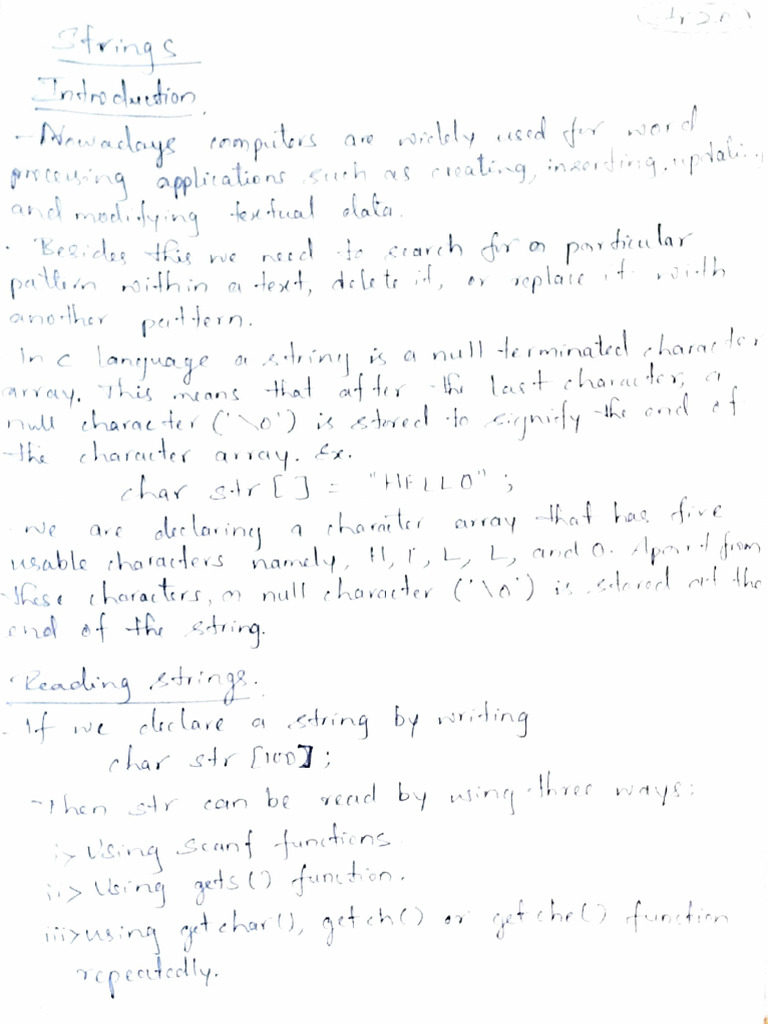 Strings
Introduction
- Nowadays computers are widely used for word
processing applications such as creating, inserting, updating
and modifying textual data.
· Besides this we need to search for a particular
pattern within a text, delete it, or replace it with
another pattern.
In c language a string is a null terminated character
array. This means that after the last character, a
null character ('\0') is stored to signify the end of
the character array. Ex.
char str [] = "HELLO" ;
we are declaring a character array that has five
usable characters namely, H, E, L, L, and O. Apart from
these characters, a null character ('\0') is stored at the
end of the string.
· Reading strings.
. If we declare a string by writing
char str [100];
- Then str can be read by using three ways:
i> Using scanf functions
ii> Using gets() function.
iii> using getchar(), getch() or getche() function
repeatedly.